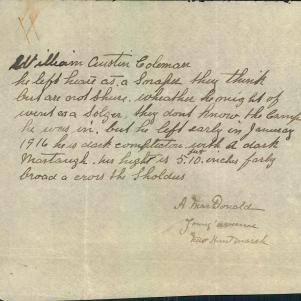 William Austin Coleman
he left heare as, a Snaper they think
but are not shure, wheather he might of
went as a Solger, they dont know the Camp
he was in. but he left early in January
1916 he is dark complection with a dark
Mastaugh. his hight is 5 ft 10. inches farly
broad a cross the Sholders
A MacDonald
Young avenue